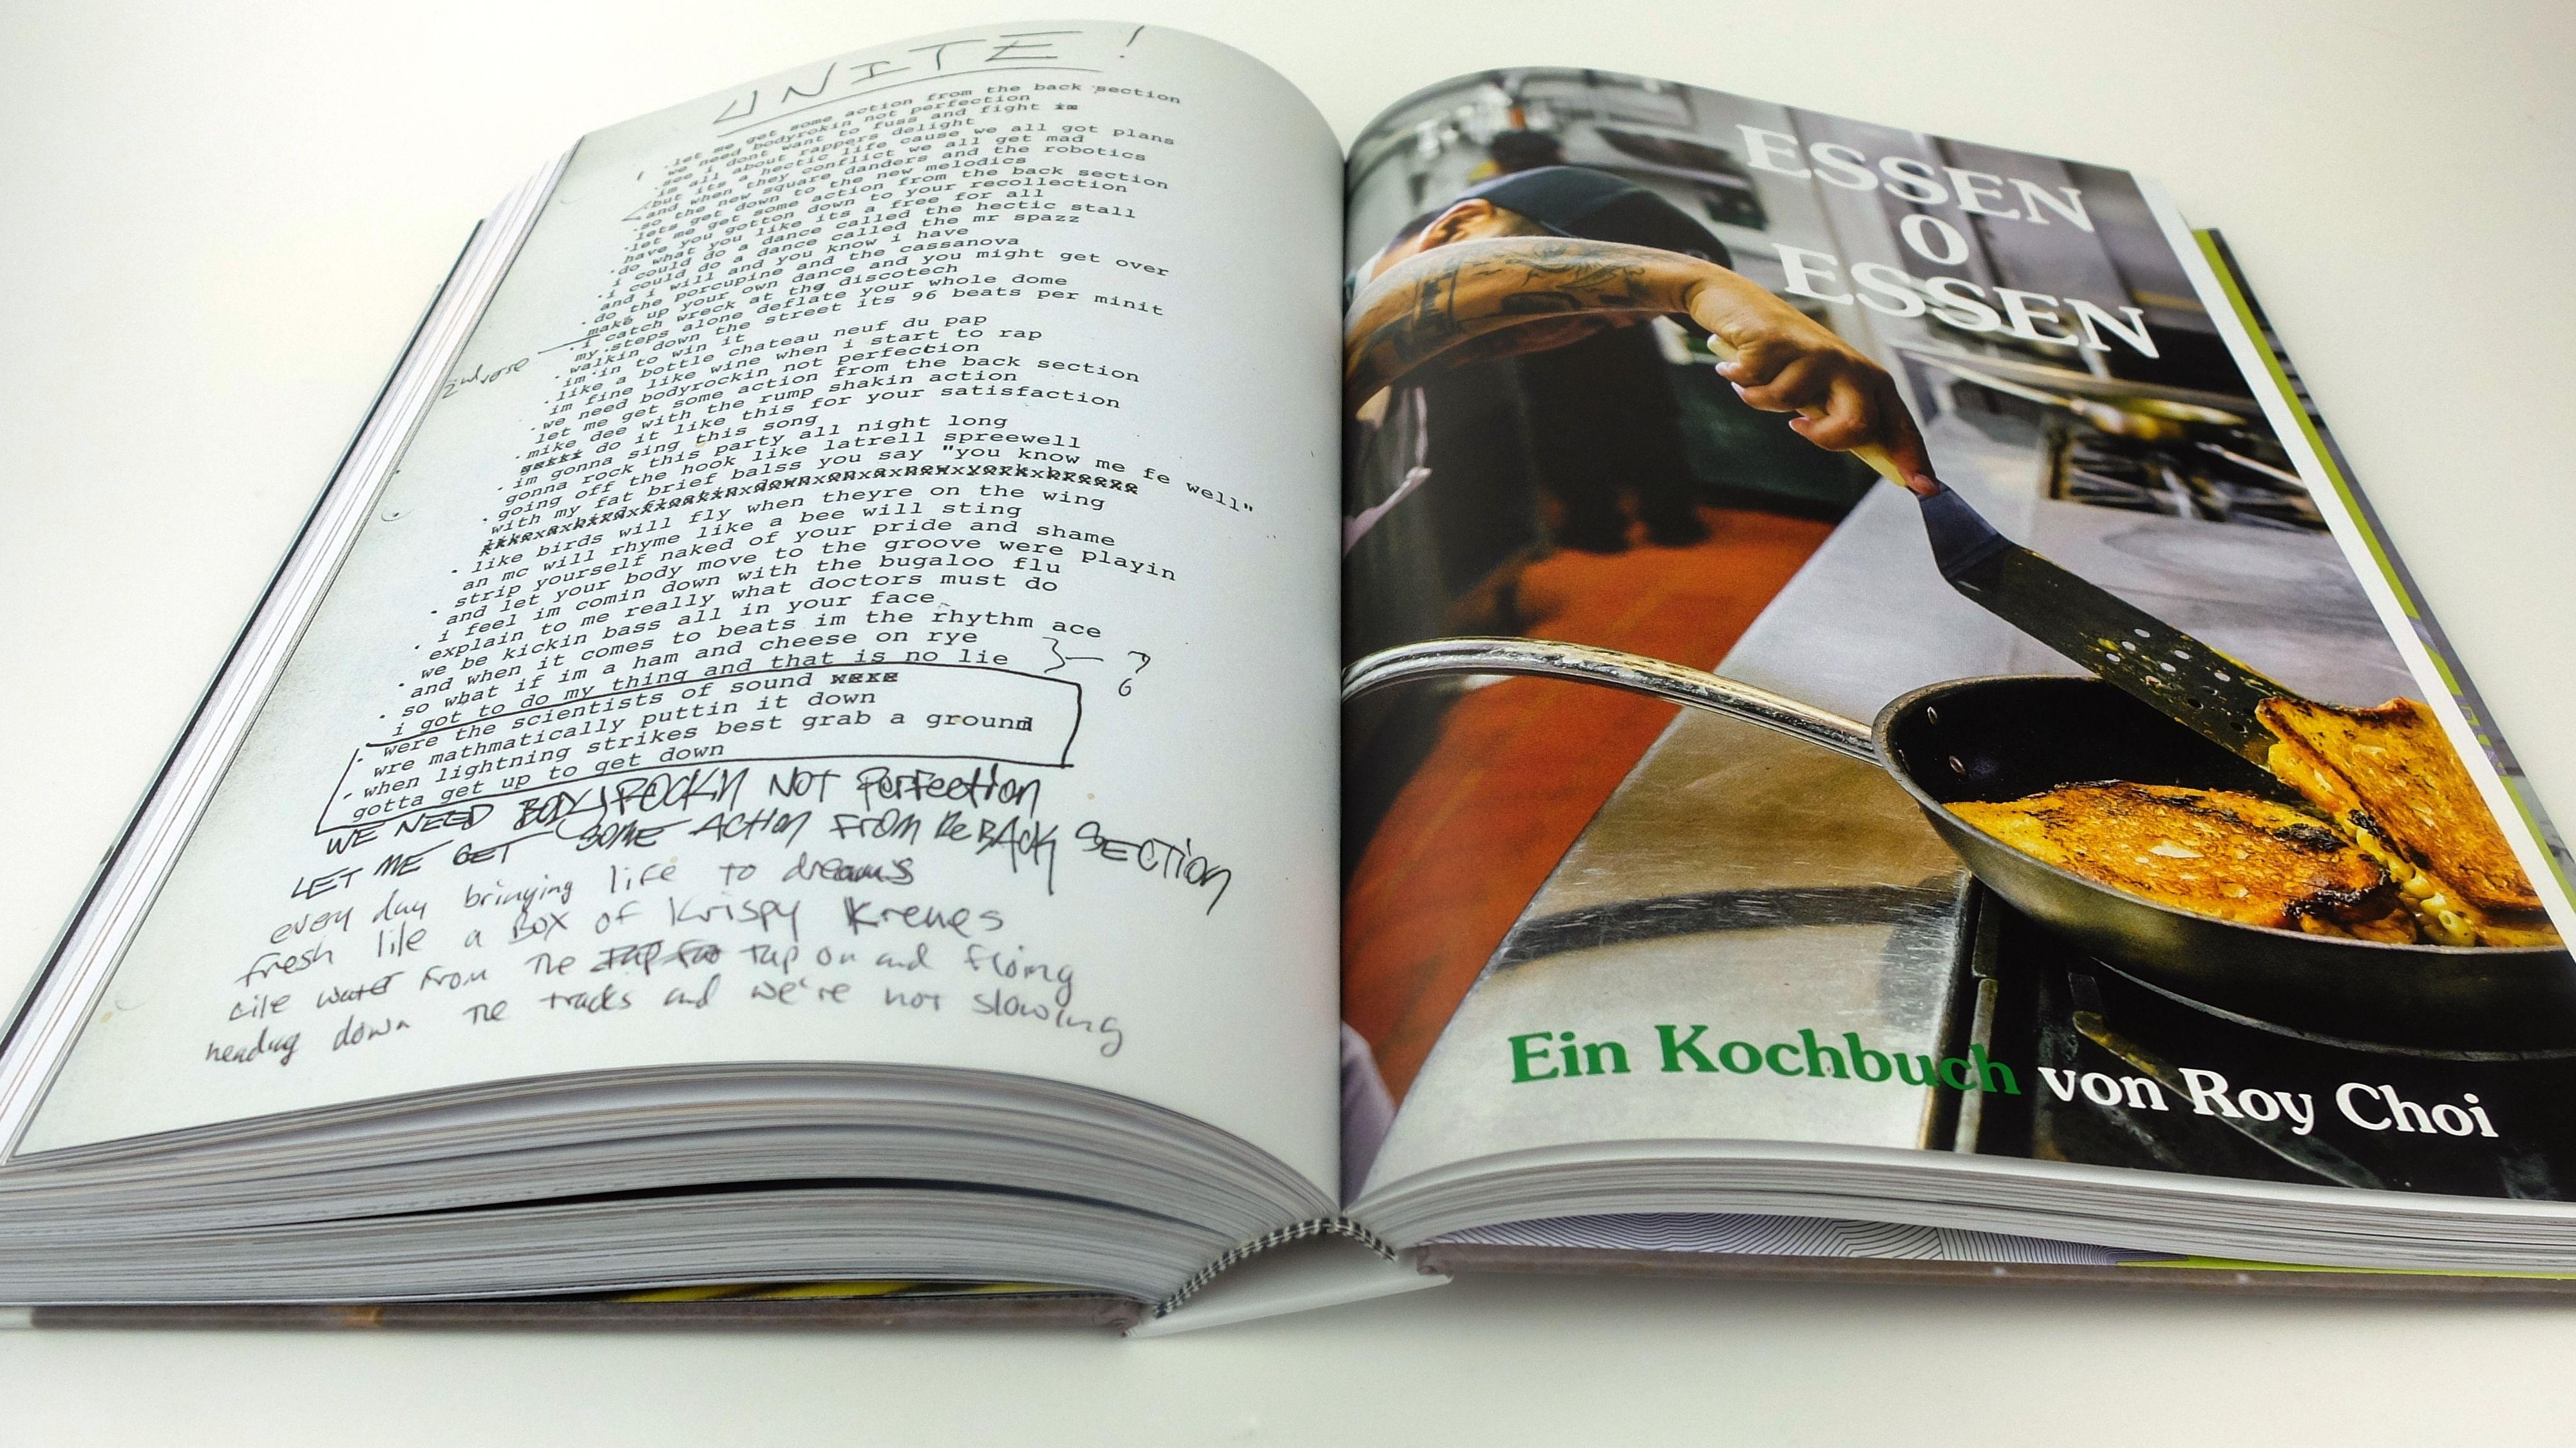 UNITE!
.let me get some action from the back section
we need bodyrokin not perfection
i dont want to fuss and fight
.see i about rappers delight
im all a hectic life cause we all got plans
but its they conflict we all get mad
and when square danders and the robotics
.so the new to the new melodics
lets get down action from the back section
.let me get some to your recollection
have you gotton down for all
.do what you like its a free
i could do a dance called the hectic stall
.i could do a dance called the mr spazz
and i will and you know i have
.do the porcupine and the cassanova
make up your own dance and you might get over
.i catch wreck at the discotech
my steps alone deflate your whole dome
2nd verse
walkin down the street its 96 beats per minit
.im in to win it
.like a bottle chateau neuf du pap
im fine like wine when i start to rap
.we need bodyrockin not perfection
let me get some action from the back section
.mike dee with the rump shakin action
do it like this for your satisfaction
.im gonna sing this song
gonna rock this party all night long
.going off the hook like latrell spreewell
with my fat brief balss you say "you know me fe well"
like a bird floatin down on a new york breeze
.like birds will fly when theyre on the wing
an mc will rhyme like a bee will sting
.strip yourself naked of your pride and shame
and let your body move to the groove were playin
i feel im comin down with the bugaloo flu
.explain to me really what doctors must do
we be kickin bass all in your face
.and when it comes to beats im the rhythm ace
.so what if im a ham and cheese on rye
i got to do my thing and that is no lie
?
.were the scientists of sound
wre mathmatically puttin it down
.when lightning strikes best grab a ground
gotta get up to get down
WE NEED BODYROCKIN NOT Perfection
LET ME GET SOME ACTION FROM the BACK SECTION
every day bringing life to dreams
fresh like a Box of Krispy Kremes
like water from the tap on and floing
heading down the tracks and we're not slowing
ESSEN
O
ESSEN
Ein Kochbuch von Roy Choi